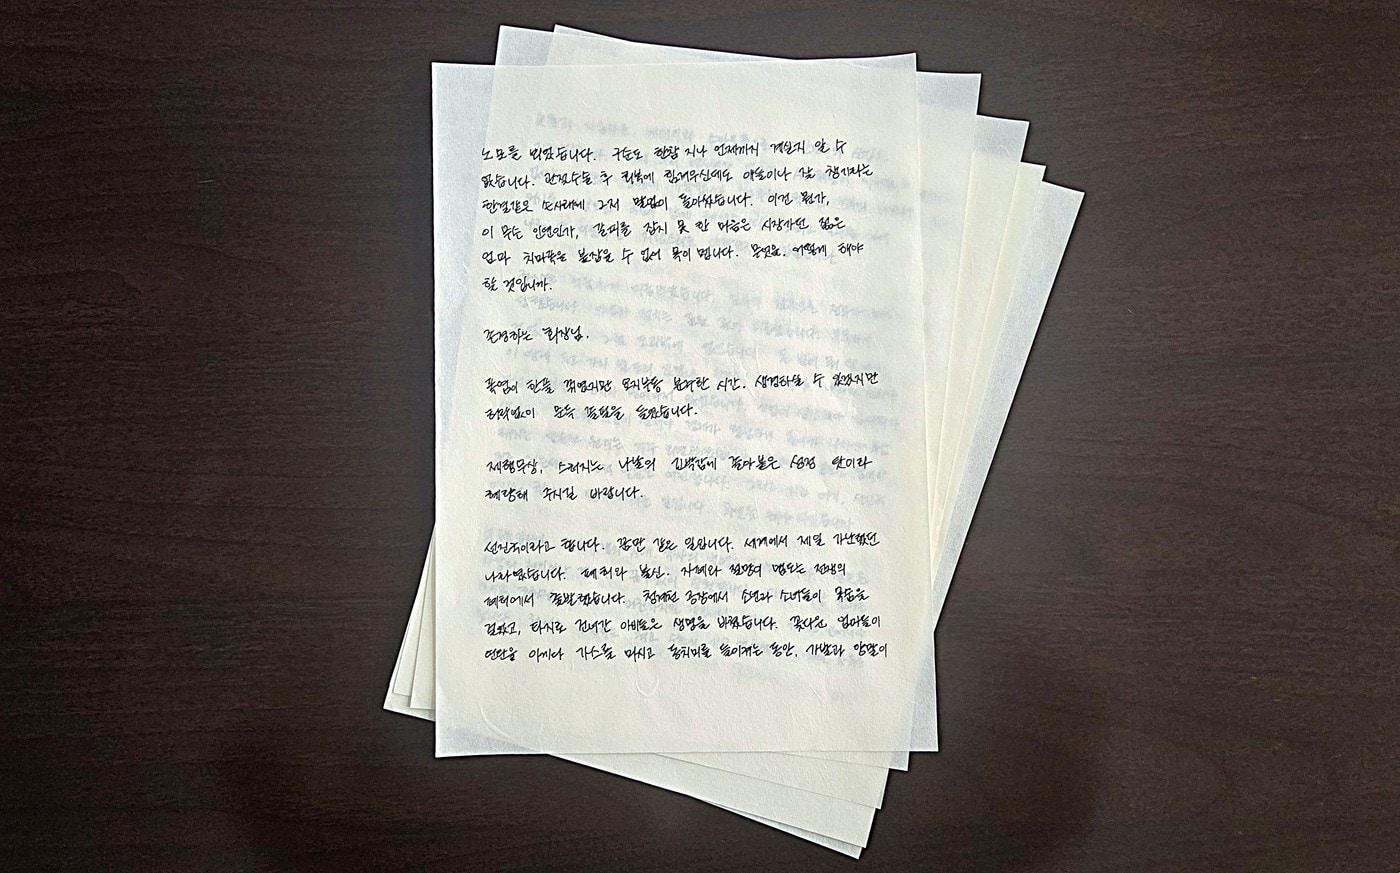 노모를 뵈었습니다. 구순도 한참 지나 언제까지 계실지 알 수
없습니다. 관절수술 후 회복에 힘겨우신데도 애들이나 잘 챙기라는
한결같은 손사래에 그저 말없이 돌아섰습니다. 이건 뭔가,
이 무슨 인연인가, 갈피를 잡지 못 한 마음은 시장가던 젊은
엄마 치마폭을 붙잡을 수 없어 목이 멥니다. 무엇을, 어떻게 해야
할 것입니까.
존경하는 회장님.
폭염이 한풀 꺾였지만 요지부동 분주한 시간. 생경하실 수 있겠지만
허락없이 문득 붓을 들었습니다.
제행무상, 스러지는 나날의 급박감에 돌아봄은 성정 탓이라
혜량해 주시길 바랍니다.
선진국이라고 합니다. 꿈만 같은 일입니다. 세계에서 제일 가난했던
나라였습니다. 폐허와 불신, 자폐와 절망이 맴도는 전쟁의
폐허에서 출발했습니다. 청계천 공장에서 소년과 소녀들이 목숨을
걸었고, 타지로 건너간 아비들은 생명을 바쳤습니다. 꽃다운 엄마들이
연탄을 아끼다 가스를 마시고 동치미를 들이켜는 동안, 가발과 양말이